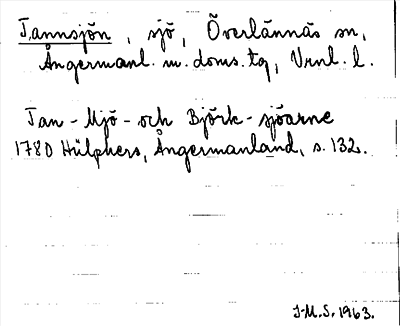 Tannsjön, sjö, Överlännäs sn,
Ångermanl. m. doms. tg, Vrnl. l.
Tan - Mjö - och Björk - sjöarne
1780 Hülphers, Ångermanland, s. 132.
J-M.S. 1963.